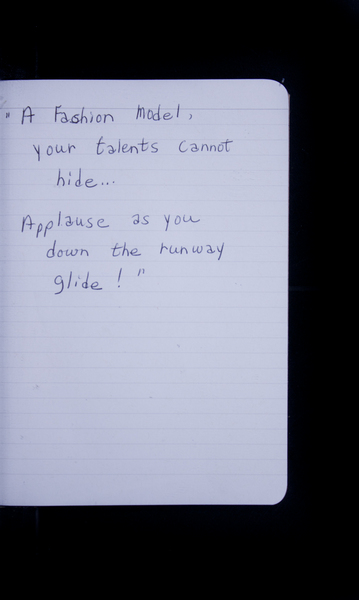 " A Fashion Model,
your talents cannot
hide...
Applause as you
down the runway
glide ! "